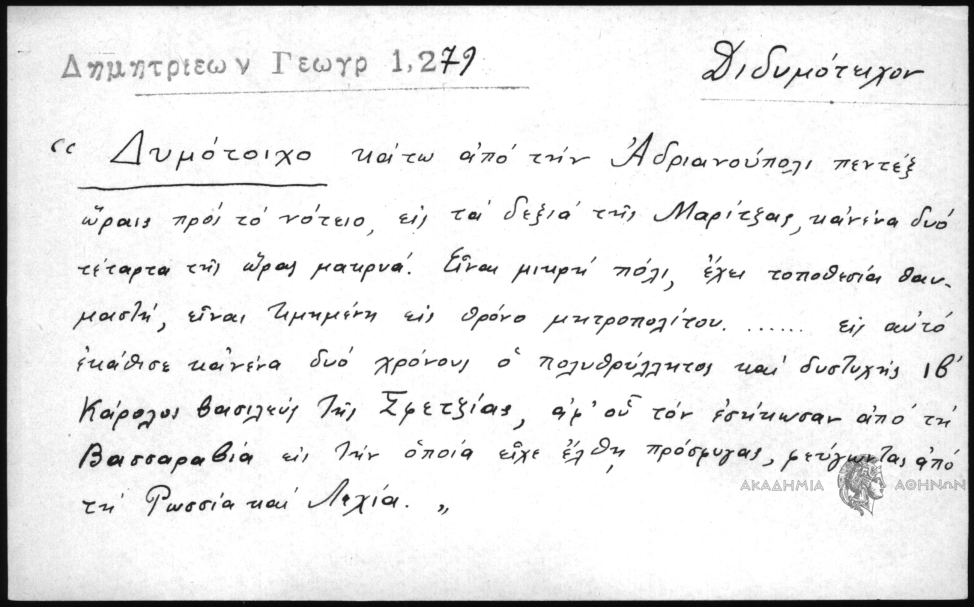 Δημητριεων Γεωγρ 1,279
Διδυμότειχον
“ Δυμότοιχο κάτω ἀπό τήν Ἀδριανούπολι πεντέξ
ὥραις πρός τό νότειο, εἰς τά δεξιά τῆς Μαρίτξας, κἀνένα δυό
τέταρτα τῆς ὥρας μακρυά. Εἶναι μικρή πόλι, ἔχει τοποθεσία θαυ-
μαστή, εἶναι τιμημένη εἰς θρόνο μητροπολίτου. ...... εἰς αὐτό
ἐκάθισε κἀνένα δυό χρόνους ὁ πολυθρύλλητος καί δυστυχής ιβ'
Κάρολος βασιλεύς τῆς Σφετξίας, ἀφ' οὗ τόν ἐσήκωσαν ἀπό τή
Βασσαραβία εἰς τήν ὁποία εἶχε ἔλθη πρόσφυγας, φεύγωντας ἀπό
τή Ρωσσία καί Λεχία. „
ΑΚΑΔΗΜΙΑ ΑΘΗΝΩΝ